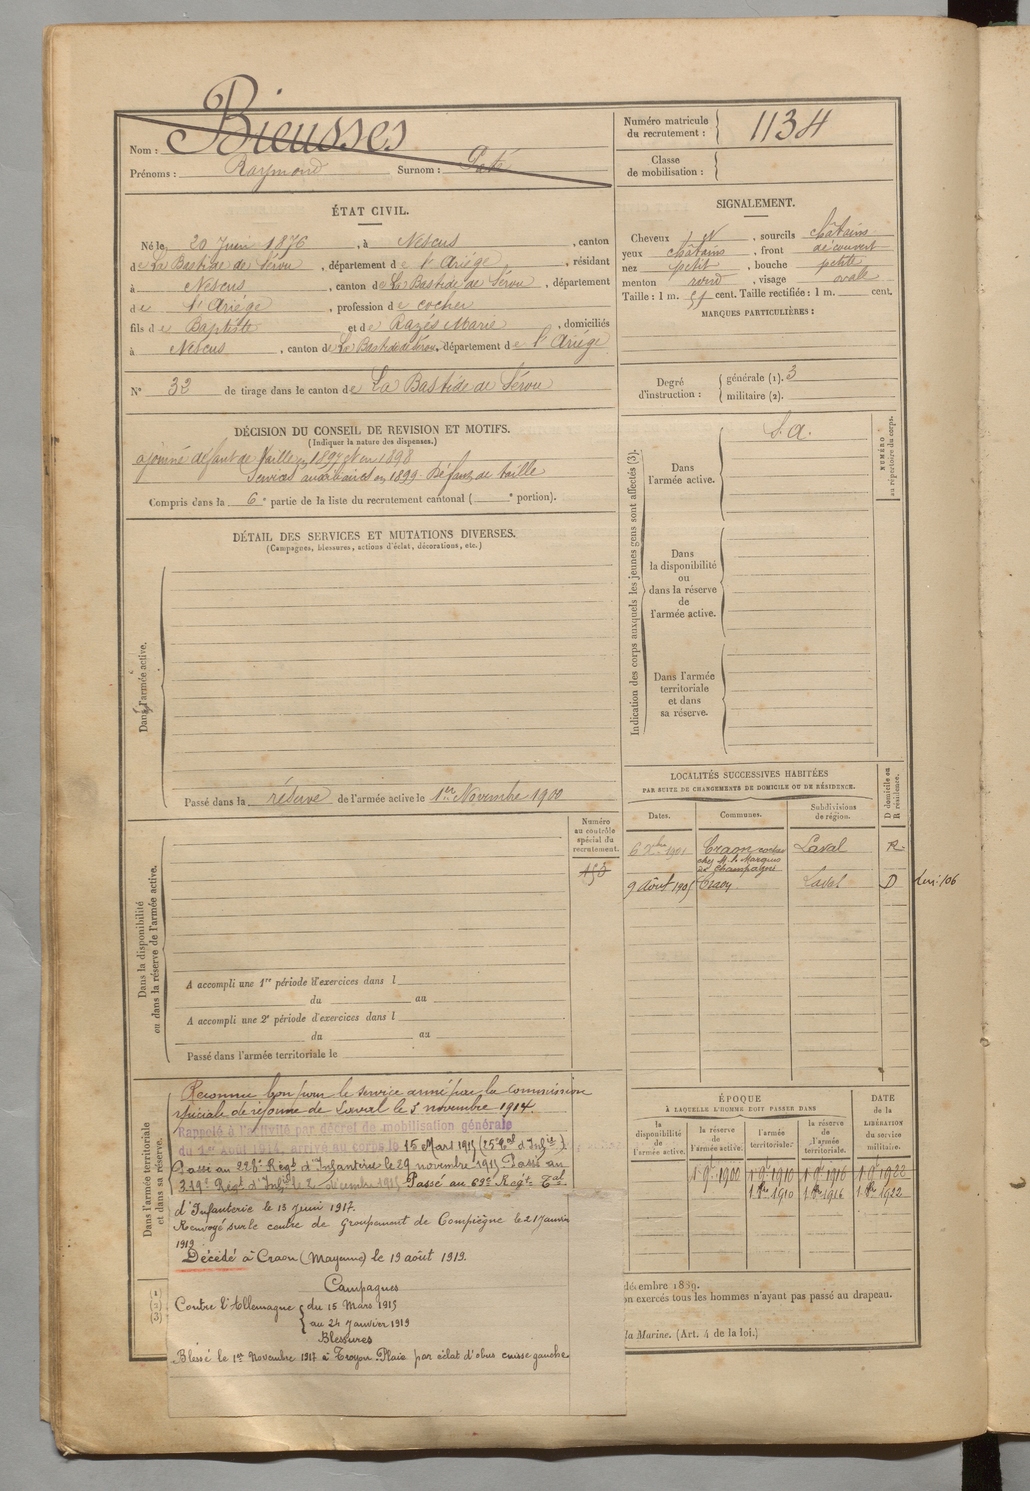 Nom : Bieusses
Prénoms : Raymond Surnom : Paté
Numéro matricule du recrutement : 1134
Classe de mobilisation :
ÉTAT CIVIL.
Né le 20 Juin 1876, à Nescus, canton
de La Bastide de Sérou, département de l'Ariège, résidant
à Nescus, canton de La Bastide de Sérou, département
de l'Ariège, profession de cocher
fils de Baptiste et de Razés Marie, domiciliés
à Nescus, canton de La Bastide de Sérou, département de l'Ariège
N° 32 de tirage dans le canton de La Bastide de Sérou
SIGNALEMENT.
Cheveux, sourcils châtains
yeux châtains, front découvert
nez petit, bouche petite
menton rond, visage ovale
Taille : 1 m. 51 cent. Taille rectifiée : 1 m. cent.
MARQUES PARTICULIÈRES :
Degré d'instruction : générale (1). 3
militaire (2).
DÉCISION DU CONSEIL DE REVISION ET MOTIFS.
(Indiquer la nature des dispenses.)
ajourné défaut de taille en 1897 et en 1898
Services auxiliaires en 1899. Défaut de taille
Compris dans la 6e partie de la liste du recrutement cantonal ( e portion).
DÉTAIL DES SERVICES ET MUTATIONS DIVERSES.
(Campagnes, blessures, actions d'éclat, décorations, etc.)
Dans l'armée active.
Passé dans la réserve de l'armée active le 1er Novembre 1900
Indication des corps auxquels les jeunes gens sont affectés (3).
NUMÉRO au répertoire du corps.
Dans l'armée active.
S. A.
Dans la disponibilité ou dans la réserve de l'armée active.
Dans l'armée territoriale et dans sa réserve.
LOCALITÉS SUCCESSIVES HABITÉES
PAR SUITE DE CHANGEMENTS DE DOMICILE OU DE RÉSIDENCE.
D domicile ou R résidence.
Dates. Communes. Subdivisions de région.
6 Xbre 1901 Craon cocher chez M. le Marquis de Champagné Laval R
9 Août 1905 Craon Laval D
Dans la disponibilité ou dans la réserve de l'armée active.
Numéro au contrôle spécial du recrutement.
A accompli une 1re période d'exercices dans l
du au
A accompli une 2e période d'exercices dans l
du au
Passé dans l'armée territoriale le
Dans l'armée territoriale et dans sa réserve.
Reconnu bon pour le service armé par la commission
spéciale de réforme de Laval le 5 novembre 1914.
Rappelé à l'activité par décret de mobilisation générale
du 1er Août 1914, arrivé au corps le 15 Mars 1915 (25e Tal d'Infie).
Passé au 228e Régt d'Infanterie le 29 novembre 1915 Passé au
319e Régt d'Infie le 2 décembre 1915 Passé au 69e Régt Tal
d'Infanterie le 13 Juin 1917.
Renvoyé sur le centre de Groupement de Compiègne le 21 Janvier
1919
Décédé à Craon (Mayenne) le 19 août 1919.
Campagnes
Contre l'Allemagne du 15 Mars 1915
au 24 Janvier 1919
Blessures
Blessé le 1er Novembre 1917 à Troyon. Plaie par éclat d'obus cuisse gauche.
ÉPOQUE
À LAQUELLE L'HOMME DOIT PASSER DANS
la disponibilité de l'armée active. la réserve de l'armée active. l'armée territoriale. la réserve de l'armée territoriale.
DATE de la LIBÉRATION du service militaire.
1 9bre 1900 1 9bre 1910 1 9bre 1916 1 9bre 1922
1 8bre 1910 1 8bre 1916 1 8bre 1922
(1)
(2)
(3)
décembre 1889.
on exercés tous les hommes n'ayant pas passé au drapeau.
la Marine. (Art. 4 de la loi.)